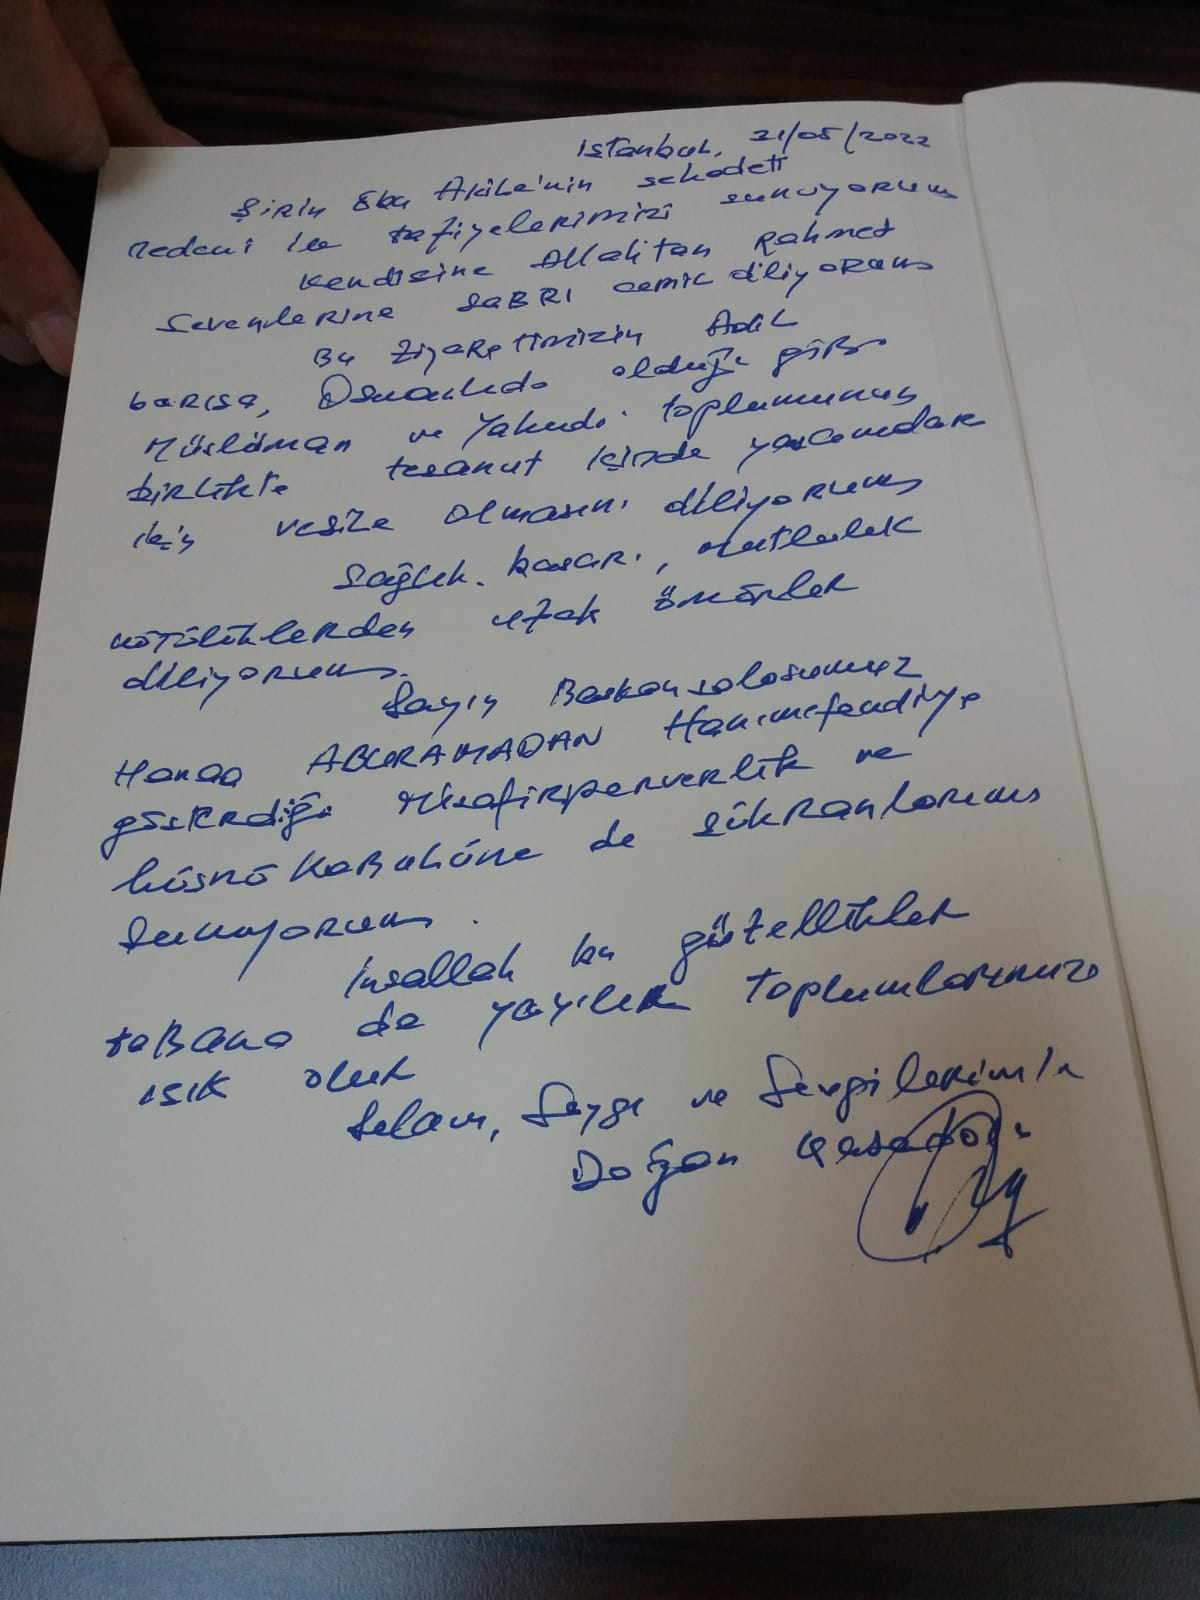 Istanbul, 21/05/2022
Şirin Ebu Akile'nin şehadeti
nedeni ile tafiyelerimizi sunuyorum
Kendisine Allahtan Rahmet
Sevenlerine SaBRI cemil diliyorum
Bu Ziyaretimizin Adil
barışa, Osmanlıda olduğu gibi
Müslüman ve Yahudi toplumunun
birlikte tesanut içinde yaşamaları
için vesile olmasını diliyorum
Sağlık, başarı, mutluluk
kötülüklerden uzak ömürler
diliyorum.
Sayın Başkonsolosumuz
Hanaa ABURAMADAN Hanımefendiye
gösterdiği misafirperverlik ve
hüsnü KaBulüne de şükranlarımı
Sunuyorum.
inşallah bu güzellikler
taBana da yayılır toplumlarımıza
ışık olur
Selam, Saygı ve Sevgilerimle
Doğan